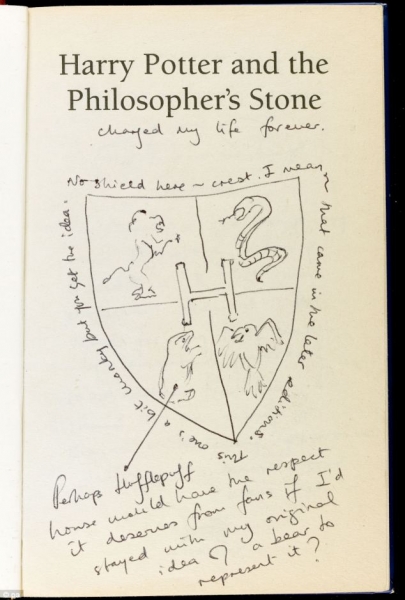 Harry Potter and the
Philosopher's Stone
changed my life forever.
No shield here ~ crest. I mean ~ that came in the later editions. This one's a bit wonky but you get the idea.
H
Perhaps Hufflepuff
house would have the respect
it deserves from fans if I'd
stayed with my original
idea of a bear to
represent it?